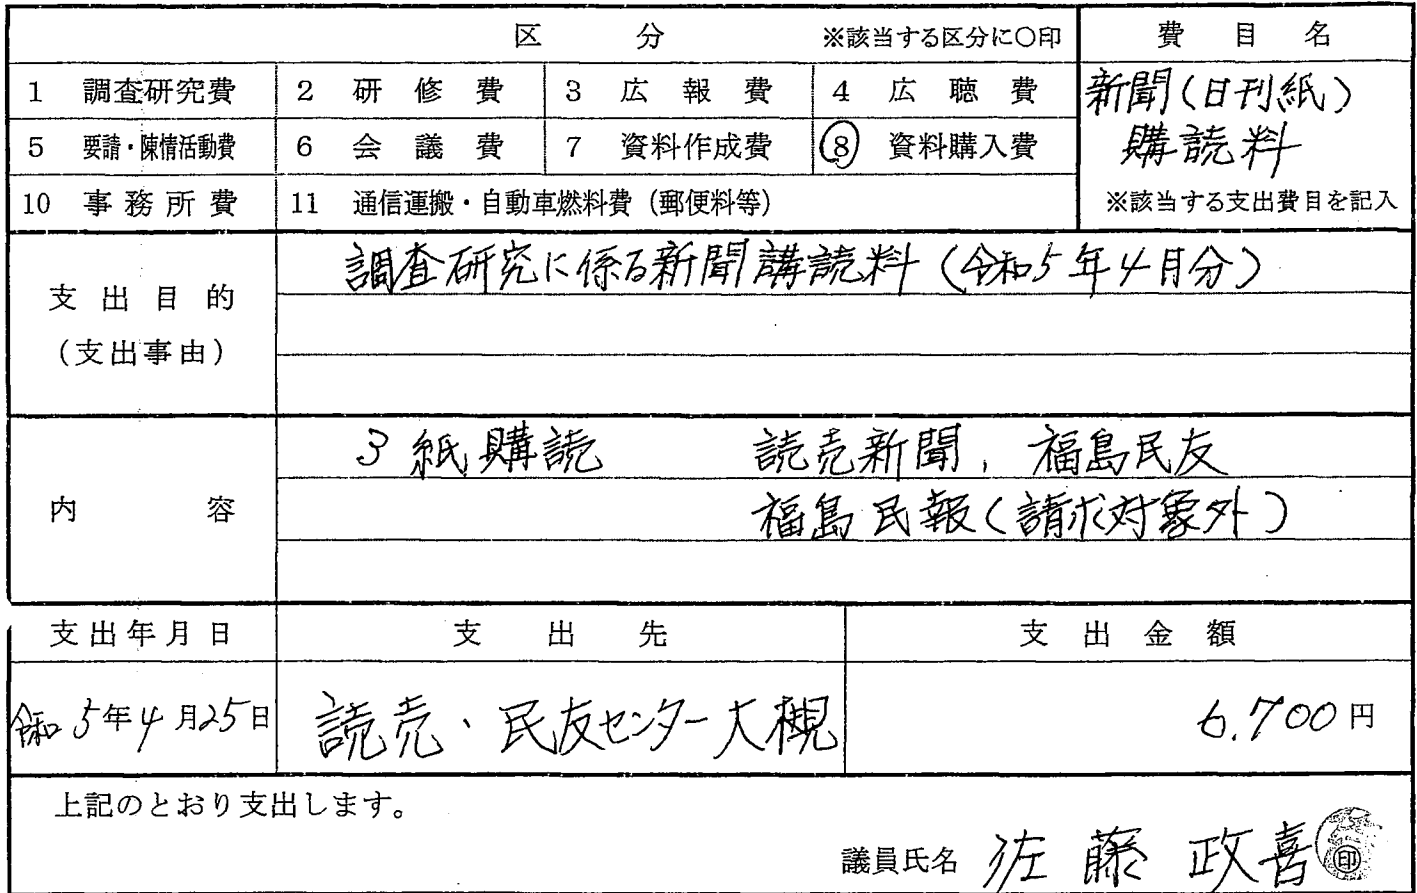 区 分 ※該当する区分に○印 費 目 名
1 調査研究費 2 研 修 費 3 広 報 費 4 広 聴 費 新聞(日刊紙)
5 要請・陳情活動費 6 会 議 費 7 資料作成費 ⑧ 資料購入費 購読料
10 事務所費 11 通信運搬・自動車燃料費(郵便料等) ※該当する支出費目を記入
支 出 目 的
(支出事由)
調査研究に係る新聞講読料(令和5年4月分)
内 容
3紙購読 読売新聞, 福島民友
福島民報(請求対象外)
支出年月日 支 出 先 支 出 金 額
令和5年4月25日 読売・民友センター大槻 6.700円
上記のとおり支出します。
議員氏名 佐藤 政喜 ㊞